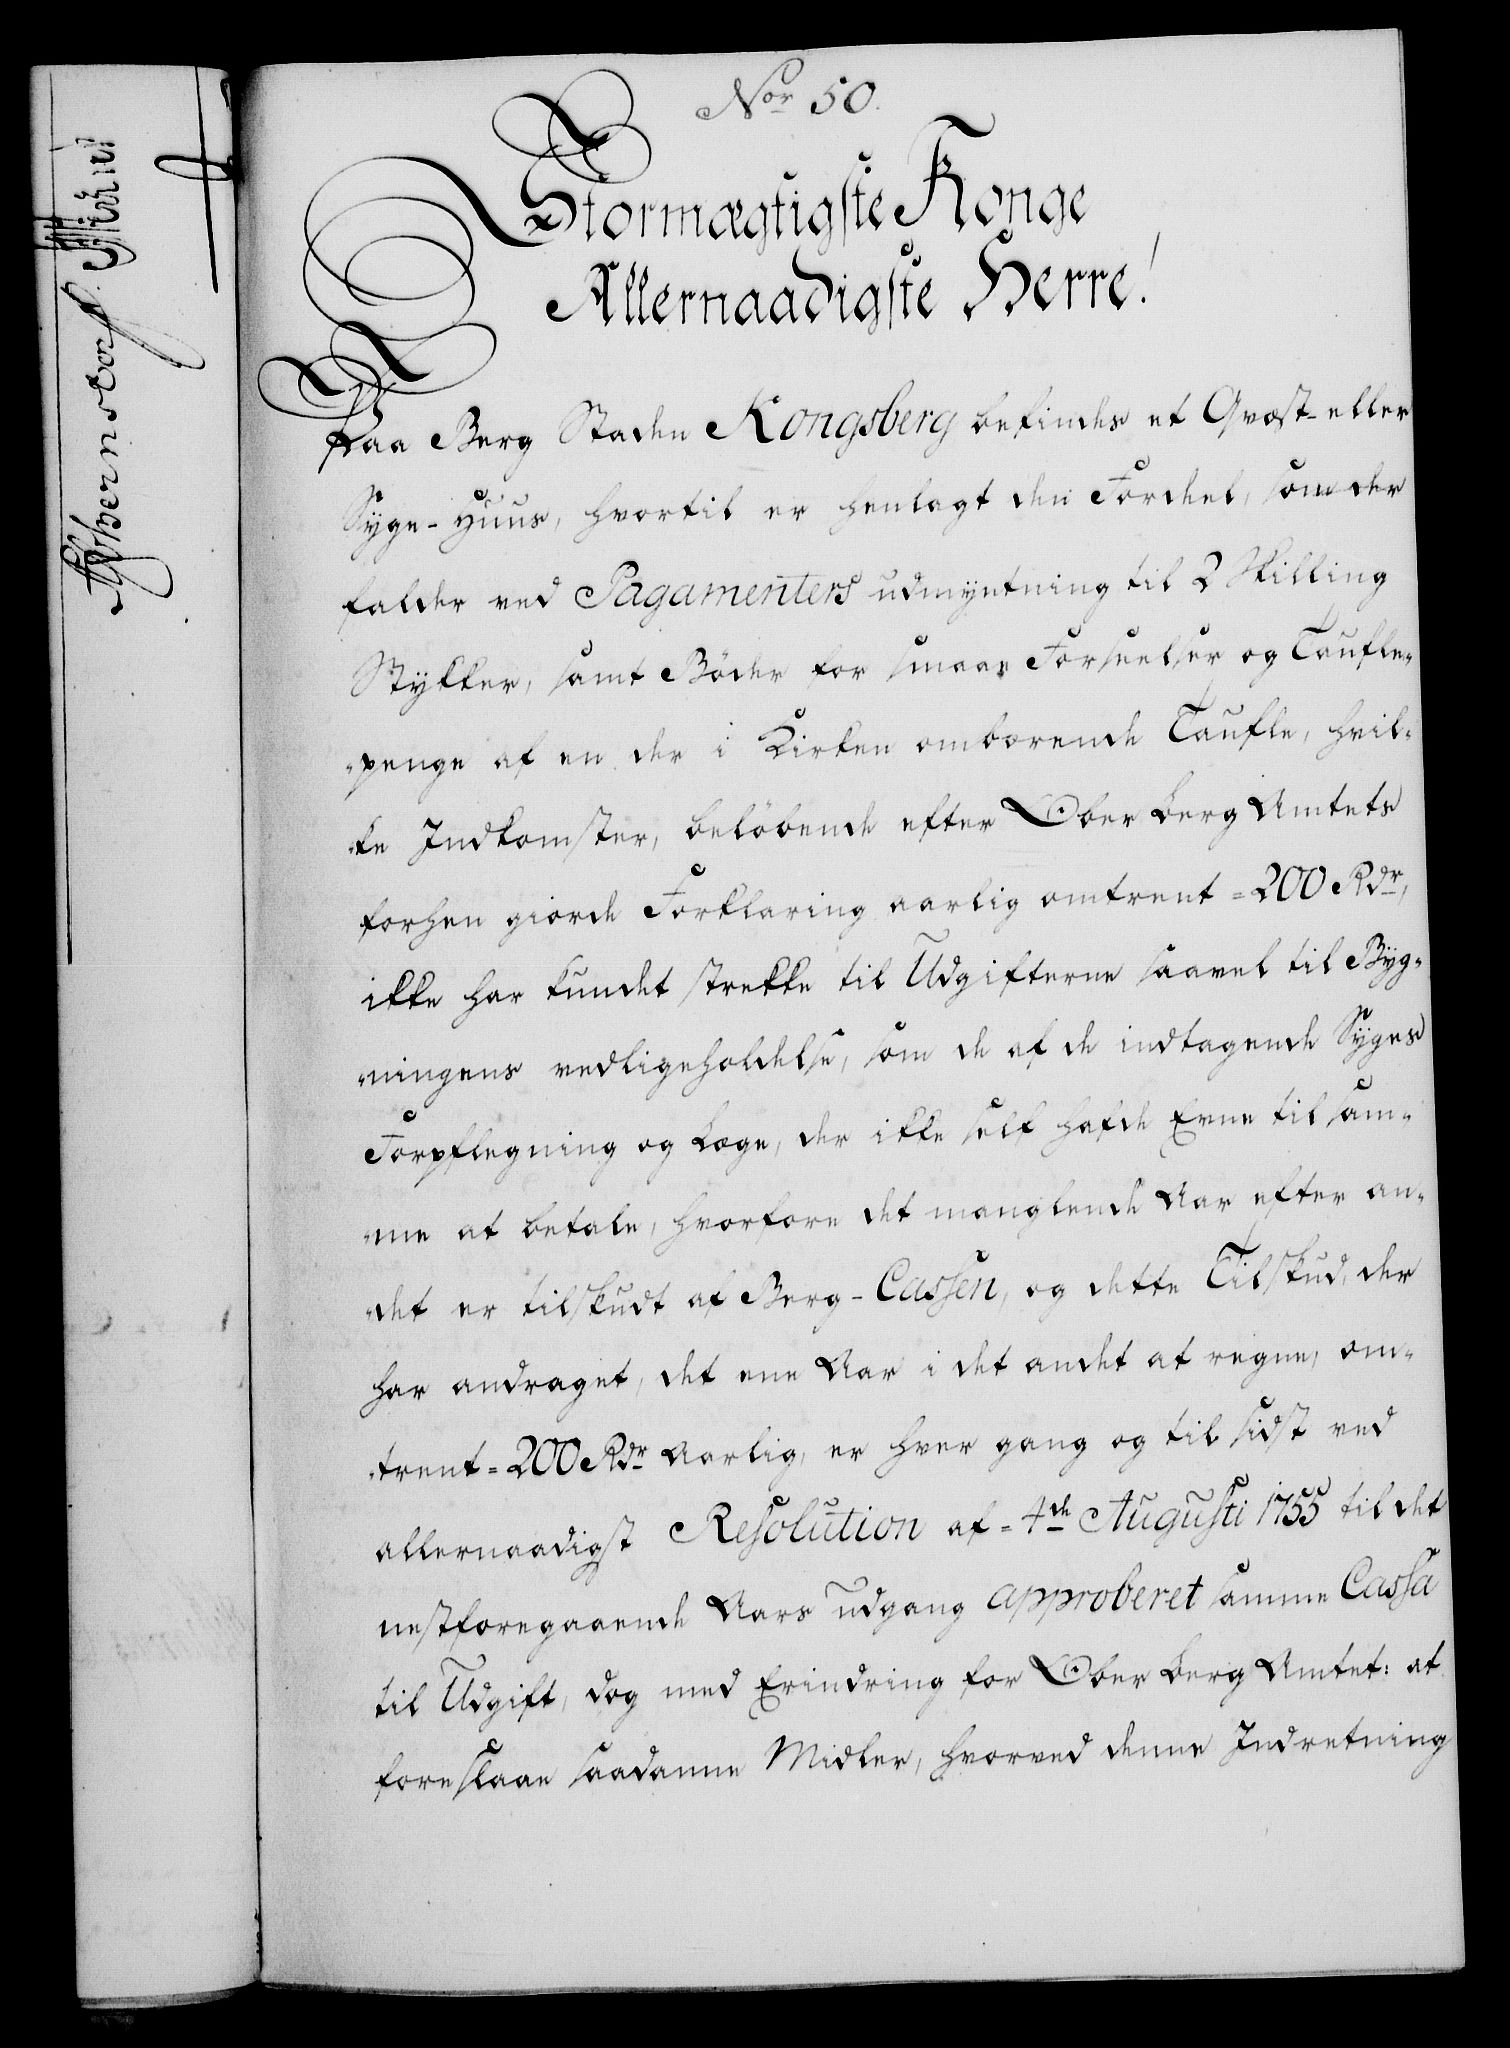 Nor 50.
Stormægtigste Konge
Allernaadigste Herre!
Paa Berg Staden Kongsberg befindes et Qvæst- eller
Syge-Huus, hvortil er henlagt den Fordeel, som der
falder ved Pagamenters udmyntning til 2 Skilling
Stykker, samt Bøder for smaae Forseelser og Taufle-
-penge af en der i Kirken ombærende Taufle, hvil-
-ke Indkomster, beløbende efter Ober Berg Amtets
forhen giorde Forklaring aarlig omtrent = 200 Rdr,
ikke har kundet strekke til Udgifterne saavel til Byg-
-ningens vedligeholdelse, som de af de indtagende Syges
Forpflegning og Læge, der ikke self hafde Evne til sam-
-me at betale, hvorfore det manglende Aar efter an-
-det er tilskudt af Berg-Cassen, og dette Tilskud, der
har andraget, det ene Aar i det andet at regne, om-
-trent = 200 Rdr Aarlig, er hver gang og til sidst ved
allernaadigst Resolution af = 4de Augusti 1755 til det
nestforegaaende Aars udgang approberet samme Cassa
til Udgift, dog med Erindring for Ober Berg Amtet: at
foreslaae saadanne Midler, hvorved denne Indretning